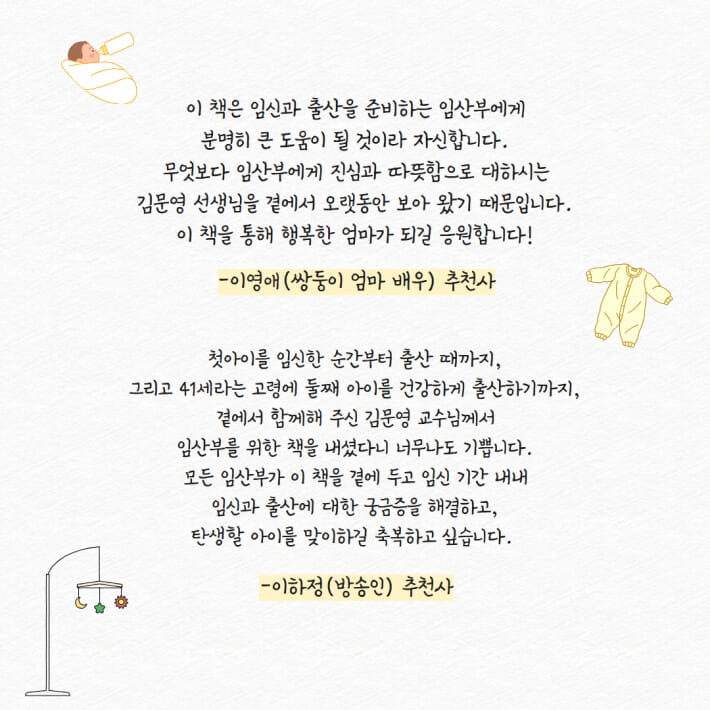 이 책은 임신과 출산을 준비하는 임산부에게
분명히 큰 도움이 될 것이라 자신합니다.
무엇보다 임산부에게 진심과 따뜻함으로 대하시는
김문영 선생님을 곁에서 오랫동안 보아 왔기 때문입니다.
이 책을 통해 행복한 엄마가 되길 응원합니다!
-이영애(쌍둥이 엄마 배우) 추천사
첫아이를 임신한 순간부터 출산 때까지,
그리고 41세라는 고령에 둘째 아이를 건강하게 출산하기까지,
곁에서 함께해 주신 김문영 교수님께서
임산부를 위한 책을 내셨다니 너무나도 기쁩니다.
모든 임산부가 이 책을 곁에 두고 임신 기간 내내
임신과 출산에 대한 궁금증을 해결하고,
탄생할 아이를 맞이하길 축복하고 싶습니다.
-이하정(방송인) 추천사